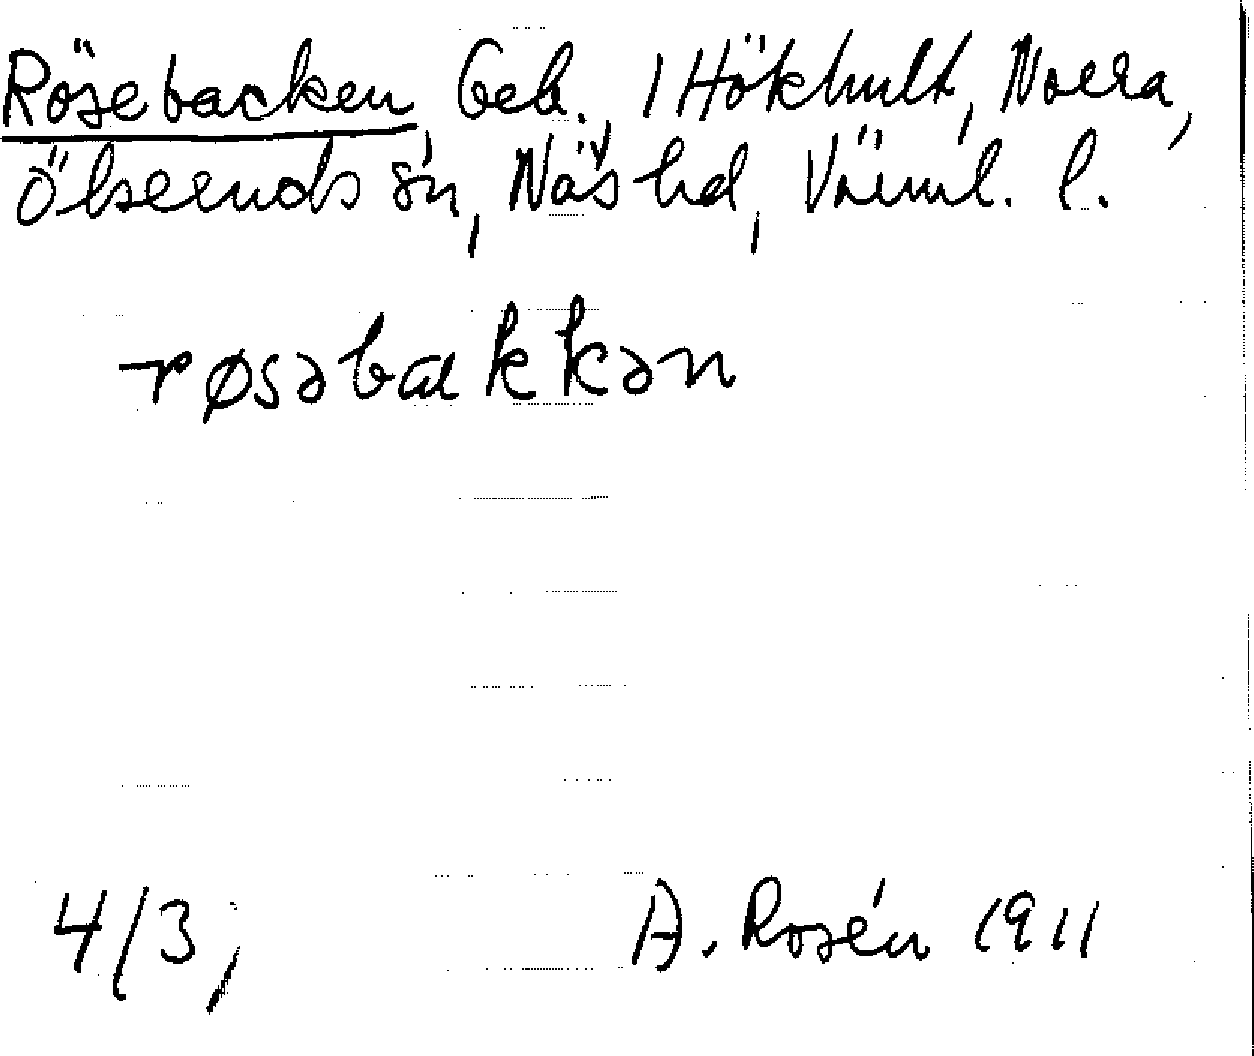 Rösebacken, Geb., 1 Hökhult, Norra,
Ölseruds sn, Näs hd, Värml. l.
røsəbakkən
4/3; A. Rosén 1911